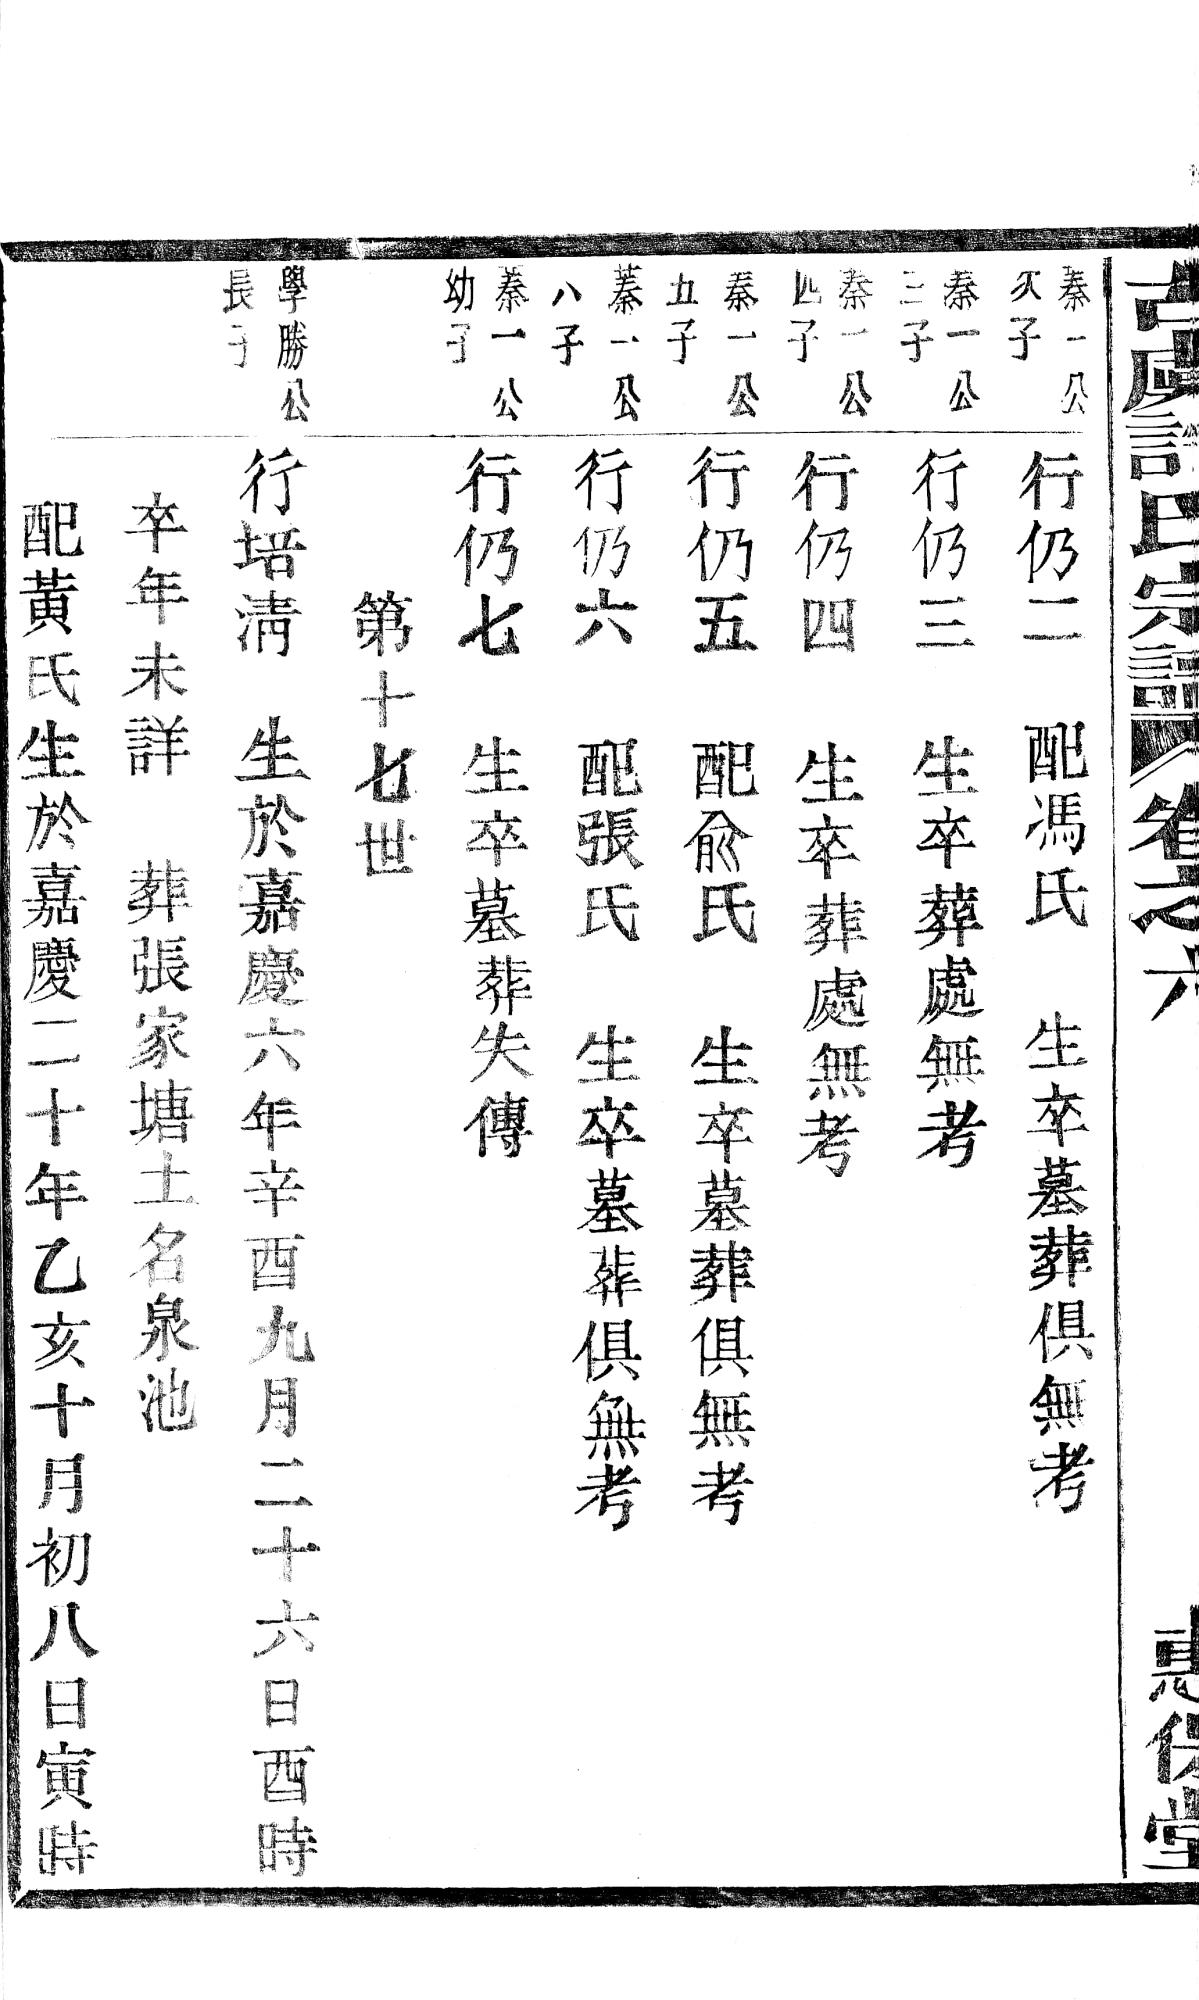 古虞許氏宗譜 卷之六 惠保堂
蓁一公
次子
行仍二 配馮氏 生卒墓葬俱無考
蓁一公
三子
行仍三 生卒葬處無考
蓁一公
四子
行仍四 生卒葬處無考
蓁一公
五子
行仍五 配俞氏 生卒墓葬俱無考
蓁一公
八子
行仍六 配張氏 生卒墓葬俱無考
蓁一公
幼子
行仍七 生卒墓葬失傳
第十七世
學勝公
長子
行培淸 生於嘉慶六年辛酉九月二十六日酉時
卒年未詳 葬張家塘土名泉池
配黃氏生於嘉慶二十年乙亥十月初八日寅時